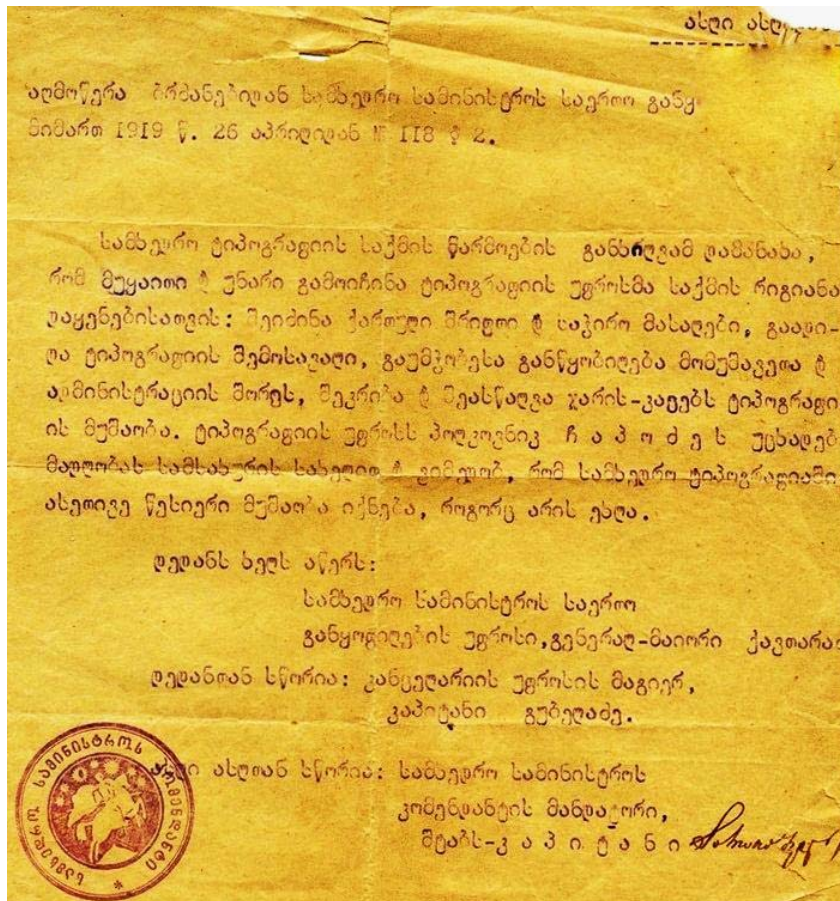 ასლი
აღმოწერა ბრძანებიდან სამხედრო სამინისტროს საერთო განყ
მიმართ 1919 წ. 26 აპრილიდან № 118 § 2.
სამხედრო ტიპოგრაფიის საქმის წარმოების განხილვამ დამანახა,
რომ მუყაითი და უნარი გამოიჩინა ტიპოგრაფიის უფროსმა საქმის რიგიანა
დაყენებისათვის: შეიძინა ქართული შრიფტი და საჭირო მასალები, გაადი-
და ტიპოგრაფიის შემოსავალი, გაუმჯობესა განწყობილება მომუშავეთა და
ადმინისტრაციის შორის, შეკრიბა და შეასწავლა ჯარის-კაცებს ტიპოგრაფი
ის მუშაობა. ტიპოგრაფიის უფროსს პოლკოვნიკ ჩ ა პ ო ძ ე ს უცხადებ
მადლობას სამსახურის სახელით და ვიმედობ, რომ სამხედრო ტიპოგრაფიაში
ასეთივე წესიერი მუშაობა იქნება, როგორც არის ეხლა.
დედანს ხელს აწერს:
სამხედრო სამინისტროს საერთო
განყოფილების უფროსი, გენერალ-მაიორი ქავთარა
დედანთან სწორია: კანცელარიის უფროსის მაგიერ,
კაპიტანი გუბელაძე.
ასლი ასლთან სწორია: სამხედრო სამინისტროს
კომენდანტის მანდატორი,
შტაბს-კ ა პ ი ტ ა ნ ი
სამხედრო სამინისტროს კომენდანტი